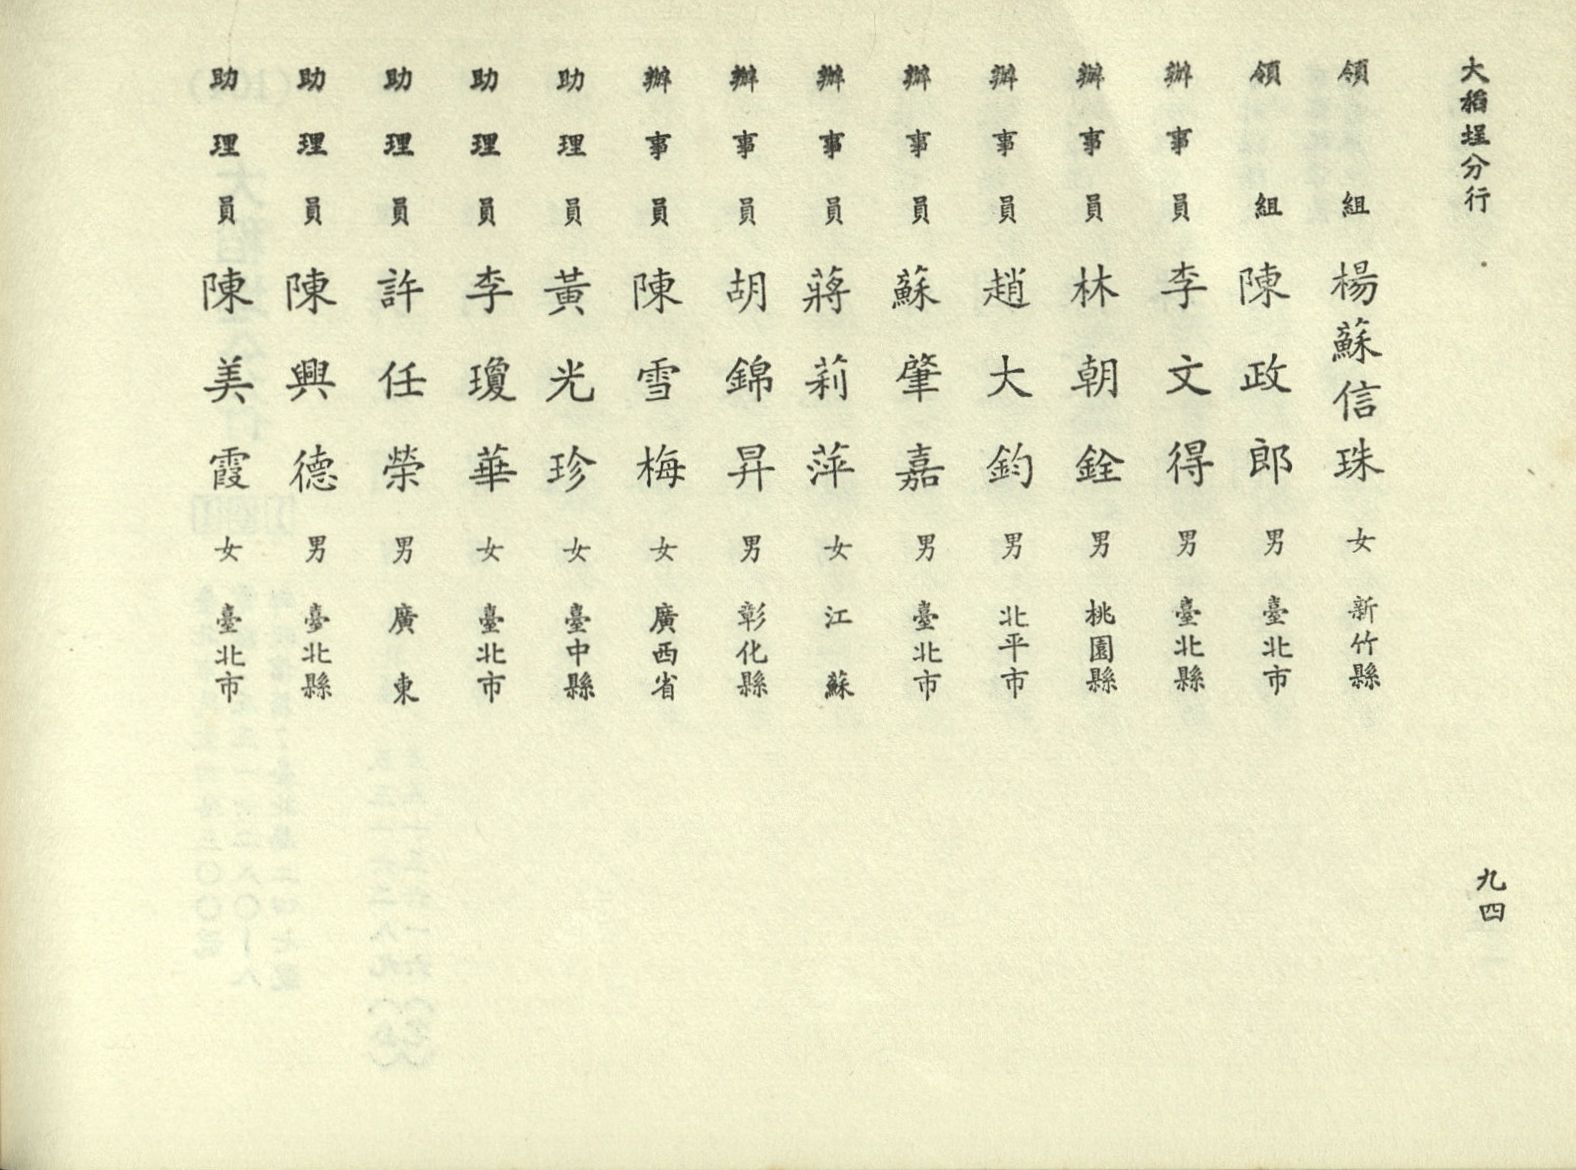 大稻埕分行
九四
領組 楊蘇信珠 女 新竹縣
領組 陳政郎 男 臺北市
辦事員 李文得 男 臺北縣
辦事員 林朝銓 男 桃園縣
辦事員 趙大鈞 男 北平市
辦事員 蘇肇嘉 男 臺北市
辦事員 蔣莉萍 女 江蘇
辦事員 胡錦昇 男 彰化縣
辦事員 陳雪梅 女 廣西省
助理員 黃光珍 女 臺中縣
助理員 李瓊華 女 臺北市
助理員 許任榮 男 廣東
助理員 陳興德 男 臺北縣
助理員 陳美霞 女 臺北市